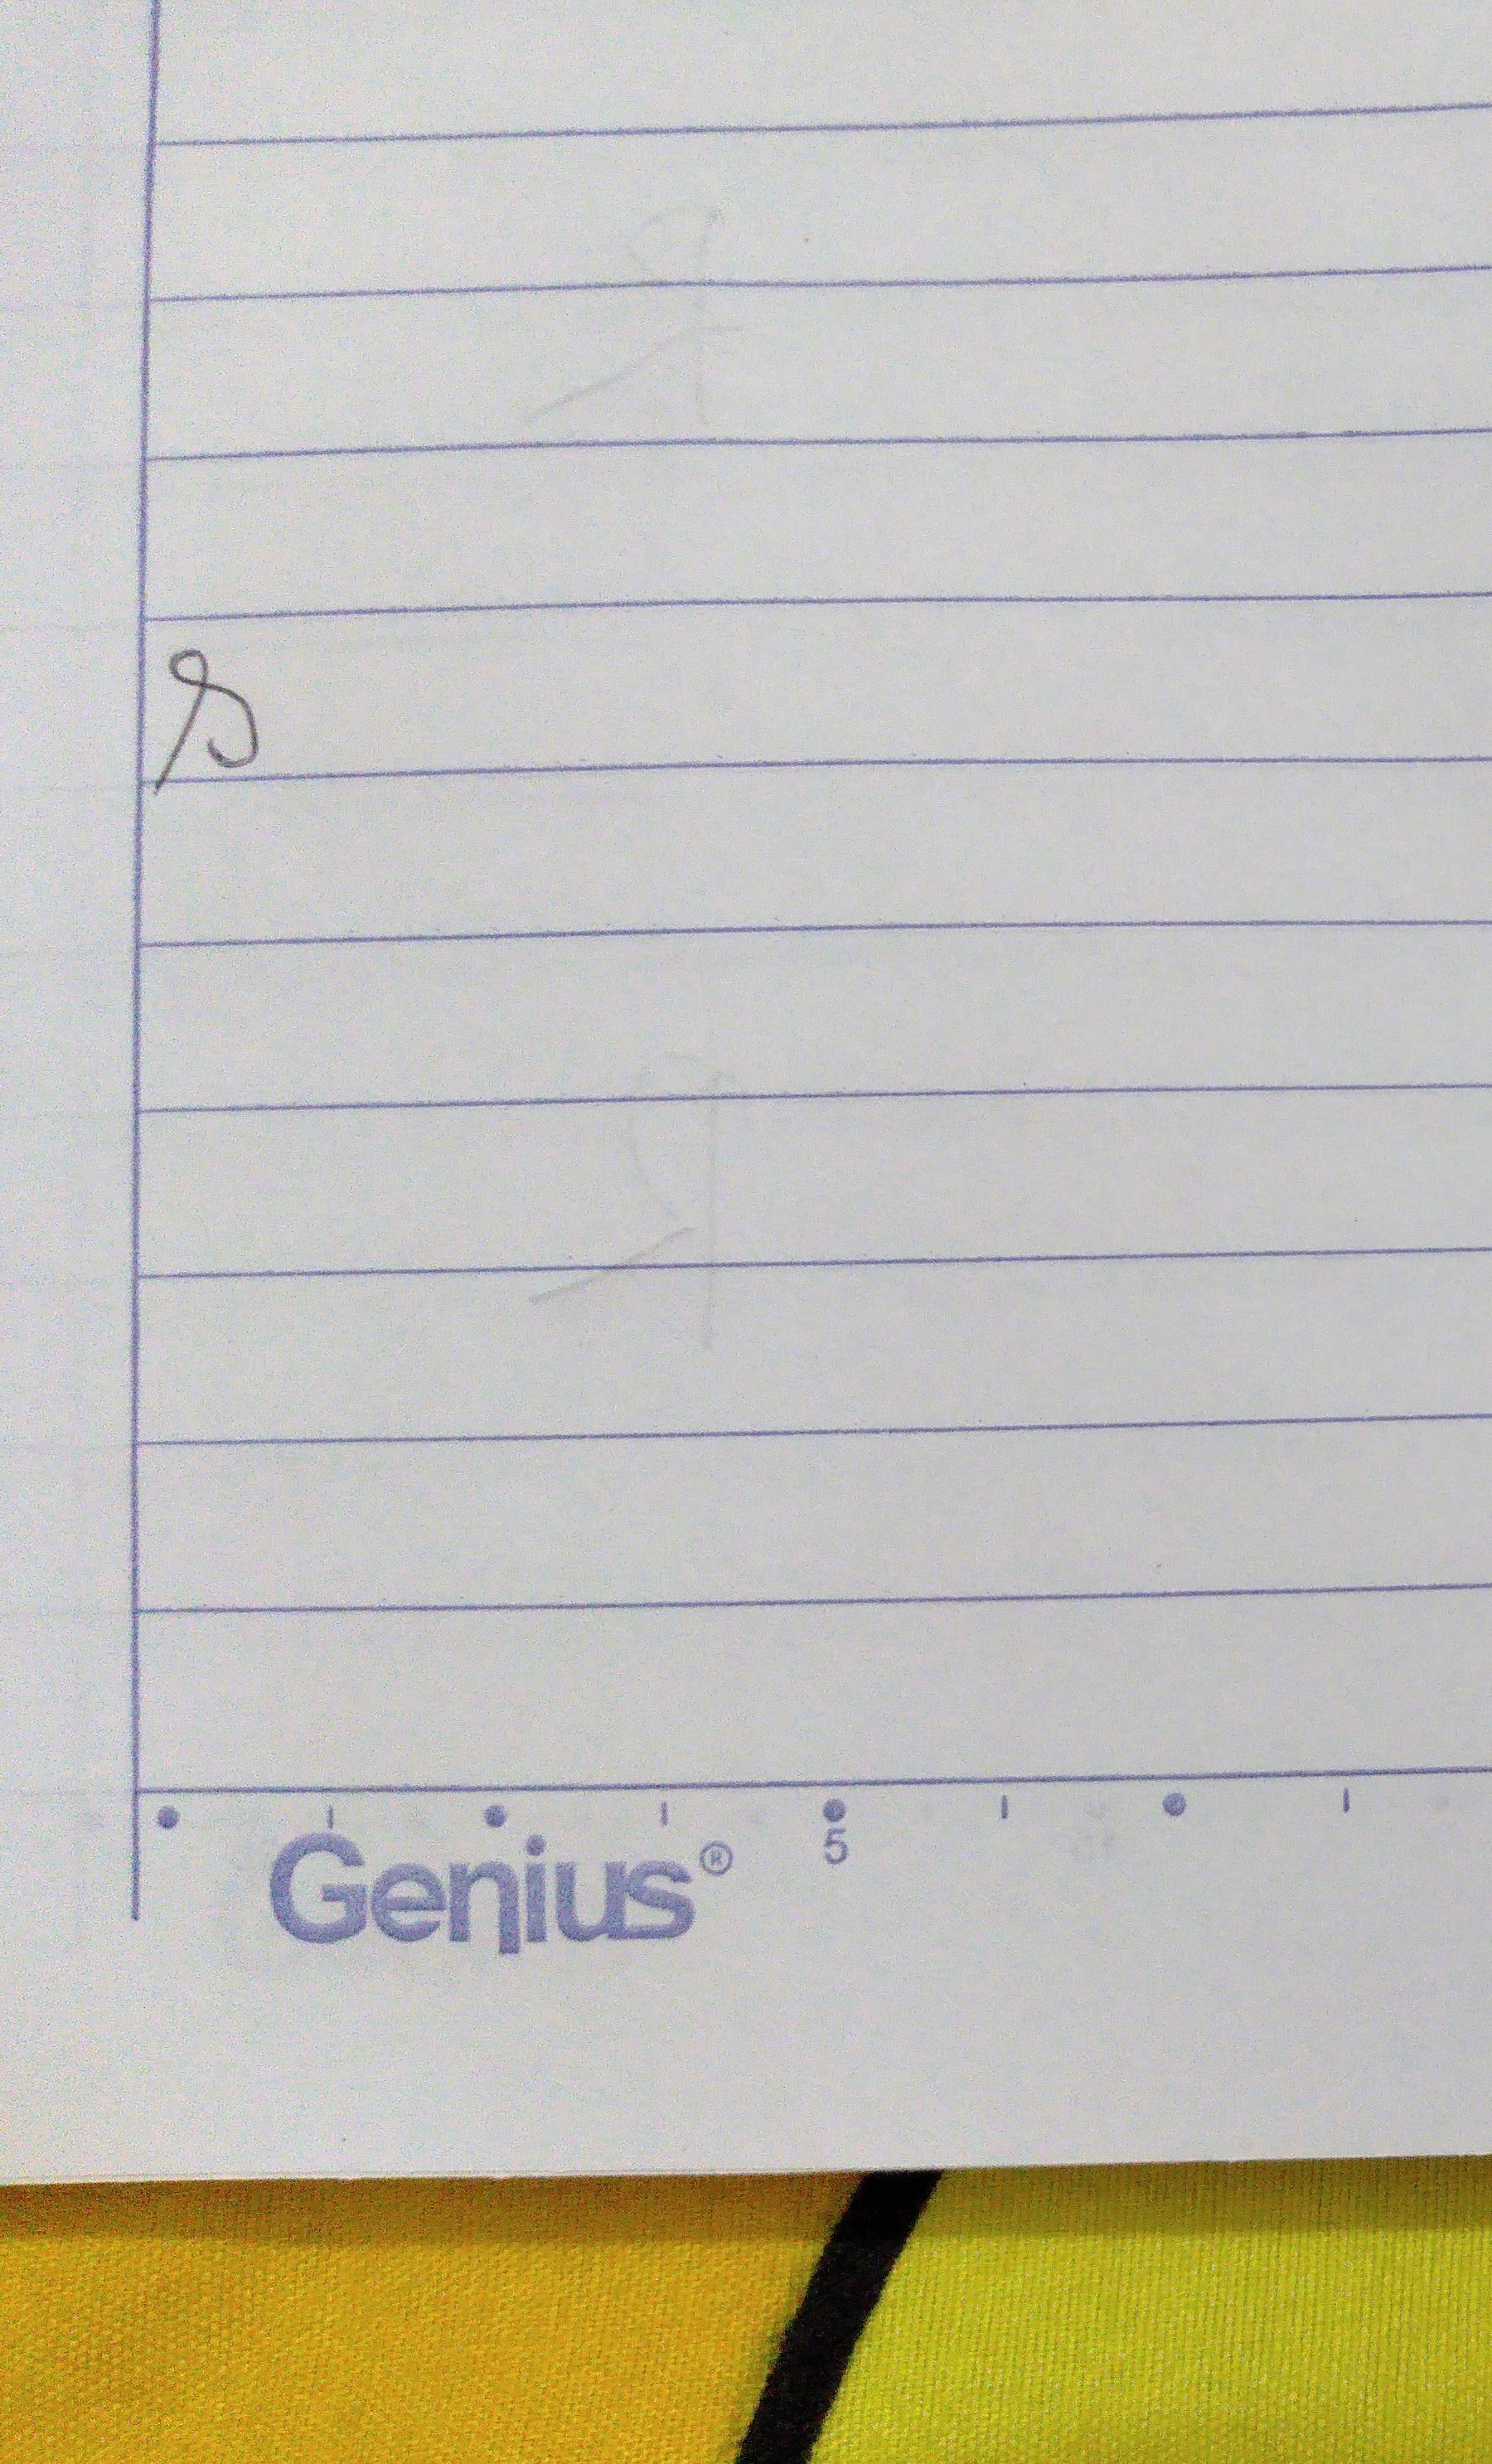 S
5
Genius®